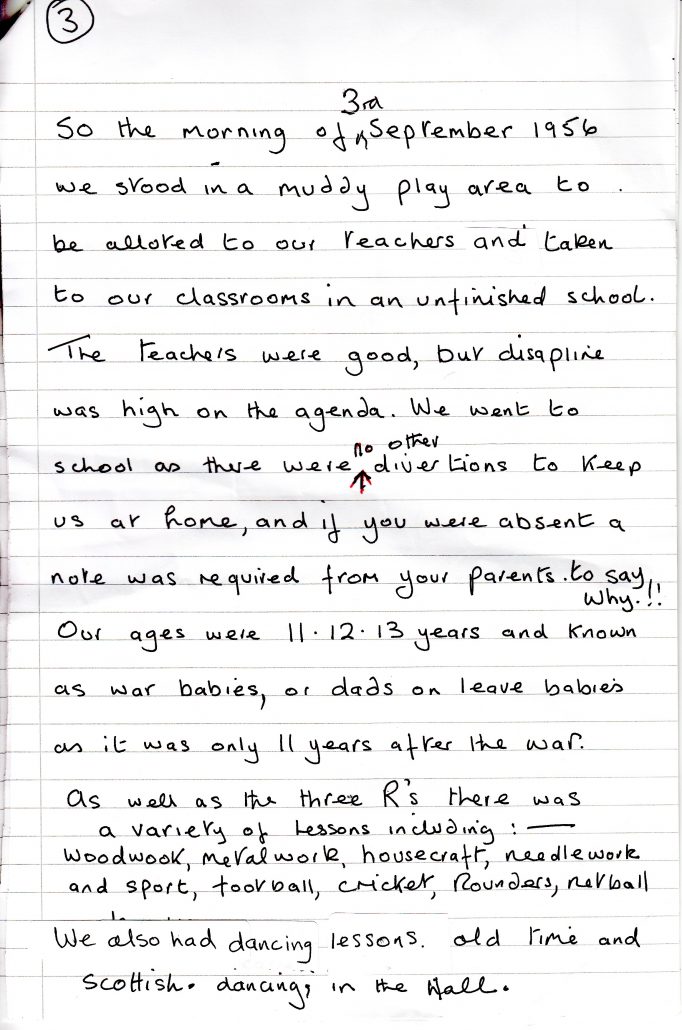 3
3rd
So the morning of ^ September 1956
we stood in a muddy play area to
be alloted to our teachers and taken
to our classrooms in an unfinished school.
The teachers were good, but disapline
was high on the agenda. We went to
no other
school as there were divertions to keep
us at home, and if you were absent a
note was required from your parents. to say,
why.!!
Our ages were 11.12.13 years and known
as war babies, or dads on leave babies
as it was only 11 years after the war.
As well as the three R's there was
a variety of lessons including : —
woodwook, metalwork, housecraft, needlework
and sport, football, cricket, Rounders, netball
We also had dancing lessons. old time and
Scottish. dancing, in the Hall.